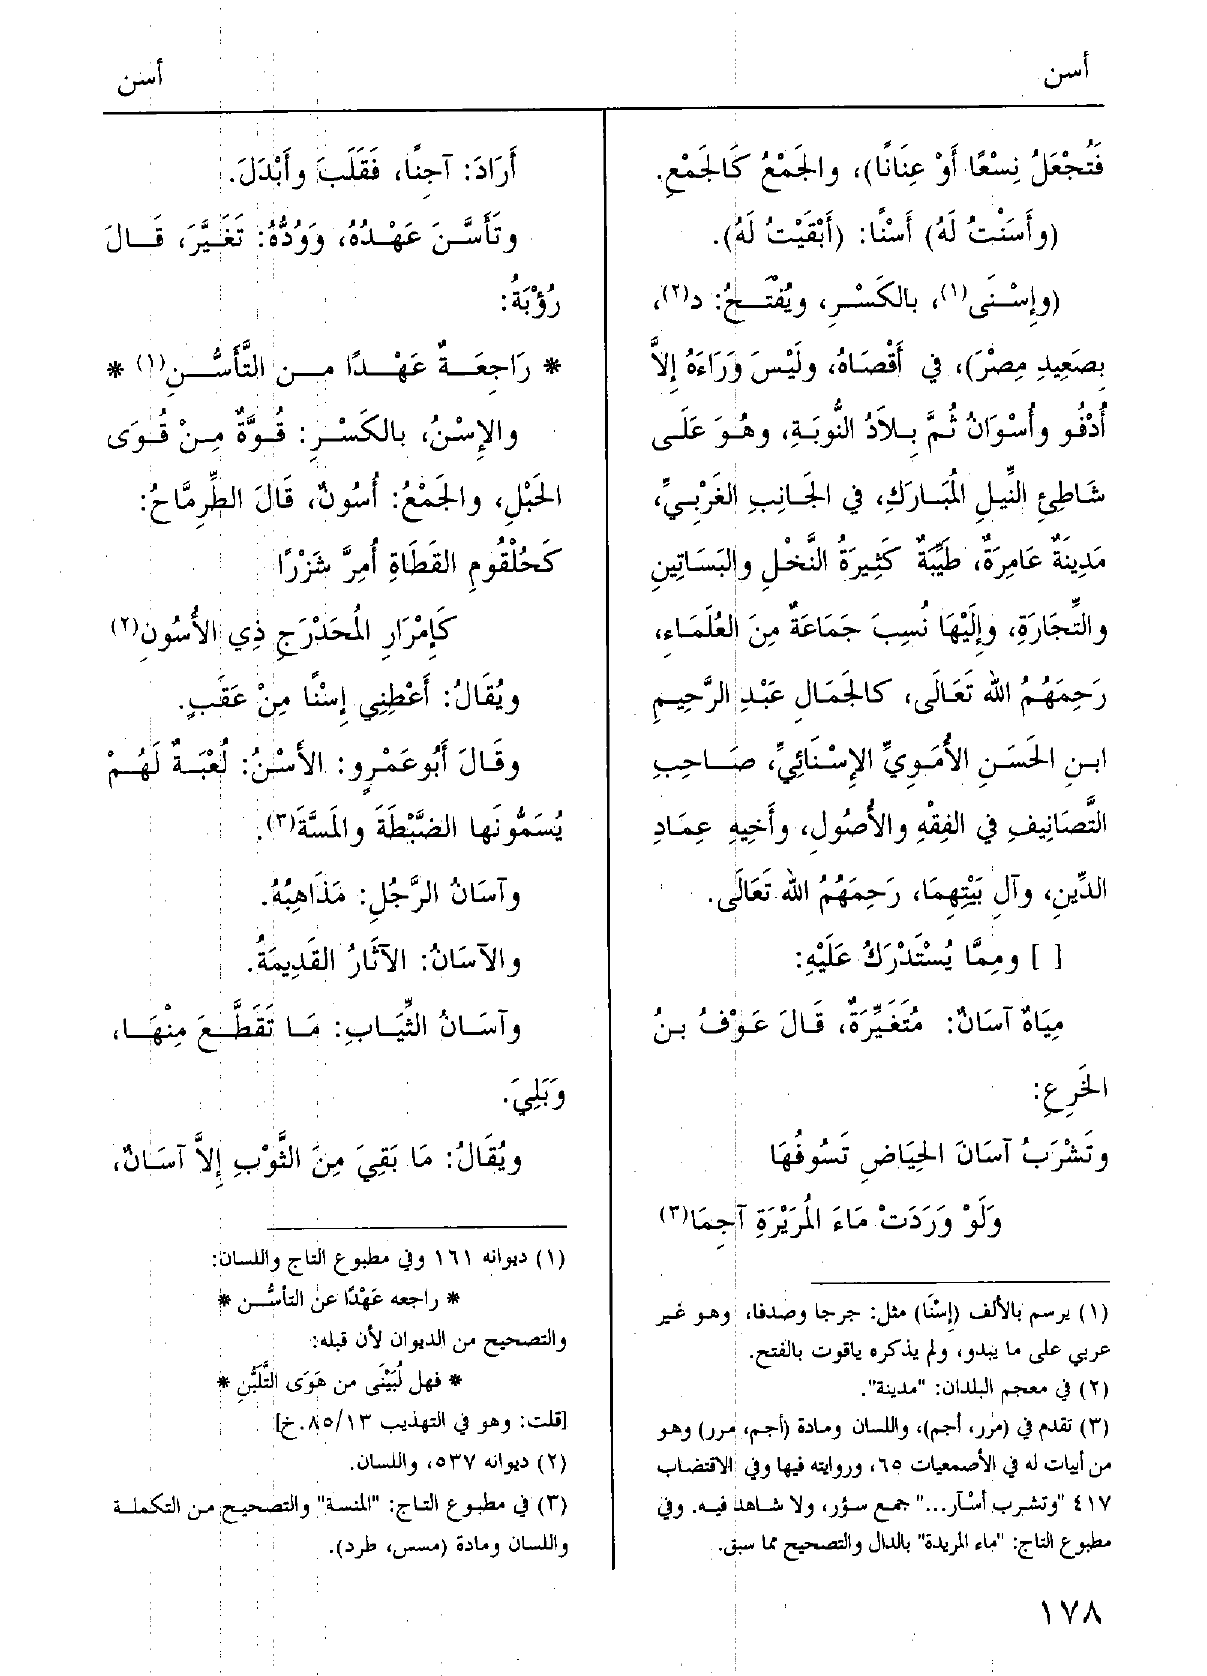 أسن
أسن
فَتُجْعَلُ نِسْعًا أَوْ عِنَانًا)، والجَمْعُ كَالجَمْعِ.
(وأَسَنْتُ لَهُ) أَسْنًا: (أَبْقَيْتُ لَهُ).
(وإِسْنَى(١)، بالكَسْرِ، ويُفْتَحُ: د(٢)،
بِصَعِيدِ مِصْرَ)، في أَقْصَاهُ، ولَيْسَ وَرَاءَهُ إِلاَّ
أُدْفُو وأُسْوَانُ ثُمَّ بِلاَدُ النُّوبَةِ، وهُوَ عَلَى
شَاطِئِ النِّيلِ المُبَارَكِ، في الجَانِبِ الغَرْبِيِّ،
مَدِينَةٌ عَامِرَةٌ، طَيِّبَةٌ كَثِيرَةُ النَّخْلِ والبَسَاتِينِ
والتِّجَارَةِ، وإِلَيْهَا نُسِبَ جَمَاعَةٌ مِنَ العُلَمَاءِ،
رَحِمَهُمُ الله تَعَالَى، كالجَمَالِ عَبْدِ الرَّحِيمِ
ابنِ الحَسَنِ الأُمَوِيِّ الإِسْنَائِيِّ، صَاحِبِ
التَّصَانِيفِ في الفِقْهِ والأُصُولِ، وأَخِيهِ عِمَادِ
الدِّينِ، وآلِ بَيْتِهِمَا، رَحِمَهُمُ الله تَعَالَى.
[ ] ومِمَّا يُسْتَدْرَكُ عَلَيْهِ:
مِيَاهٌ آسَانٌ: مُتَغَيِّرَةٌ، قَالَ عَوْفُ بنُ
الخَرِعِ:
وتَشْرَبُ آسَانَ الحِيَاضِ تَسُوفُهَا
وَلَوْ وَرَدَتْ مَاءَ المُرَيْرَةِ آجِمَا(٣)
(١) يرسم بالألف (إِسْنَا) مثل: جرجا وصدفا، وهو غير
عربي على ما يبدو، ولم يذكره ياقوت بالفتح.
(٢) في معجم البلدان: "مدينة".
(٣) تقدم في (مرر، أجم)، واللسان ومادة (أجم، مرر) وهو
من أبيات له في الأصمعيات ٦٥، وروايته فيها وفي الاقتضاب
٤١٧ "وتشرب أسْآر..." جمع سؤر، ولا شاهد فيه. وفي
مطبوع التاج: "ماء المريدة" بالدال والتصحيح مما سبق.
أَرَادَ: آجِنًا، فَقَلَبَ وأَبْدَلَ.
وتَأَسَّنَ عَهْدُهُ، وَوُدُّهُ: تَغَيَّرَ، قَالَ
رُؤْبَةُ:
* رَاجِعَةٌ عَهْدًا مِن التَّأَسُّنِ(١) *
والإِسْنُ، بالكَسْرِ: قُوَّةٌ مِنْ قُوَى
الحَبْلِ، والجَمْعُ: أُسُونٌ، قَالَ الطِّرِمَّاحُ:
كَحُلْقُومِ القَطَاةِ أُمِرَّ شَزْرًا
كَإِمْرَارِ المُحَدْرَجِ ذِي الأُسُونِ(٢)
ويُقَالُ: أَعْطِنِي إِسْنًا مِنْ عَقَبٍ.
وقَالَ أَبُو عَمْرٍو: الأَسْنُ: لُعْبَةٌ لَهُمْ
يُسَمُّونَها الضَّبْطَةَ والمَسَّةَ(٣).
وآسَانُ الرَّجُلِ: مَذَاهِبُهُ.
والآسَانُ: الآثَارُ القَدِيمَةُ.
وآسَانُ الثِّيَابِ: مَا تَقَطَّعَ مِنْهَا،
وَبَلِيَ.
ويُقَالُ: مَا بَقِيَ مِنَ الثَّوْبِ إِلاَّ آسَانٌ،
(١) ديوانه ١٦١ وفي مطبوع التاج واللسان:
* راجعه عَهْدًا عن التأسُّن *
والتصحيح من الديوان لأن قبله:
* فهل لُبَيْنَى من هَوَى التَّلَبُّنِ *
[قلت: وهو في التهذيب ٨٥/١٣.خ]
(٢) ديوانه ٥٣٧، واللسان.
(٣) في مطبوع التاج: "المنسة" والتصحيح من التكملة
واللسان ومادة (مسس، طرد).
١٧٨